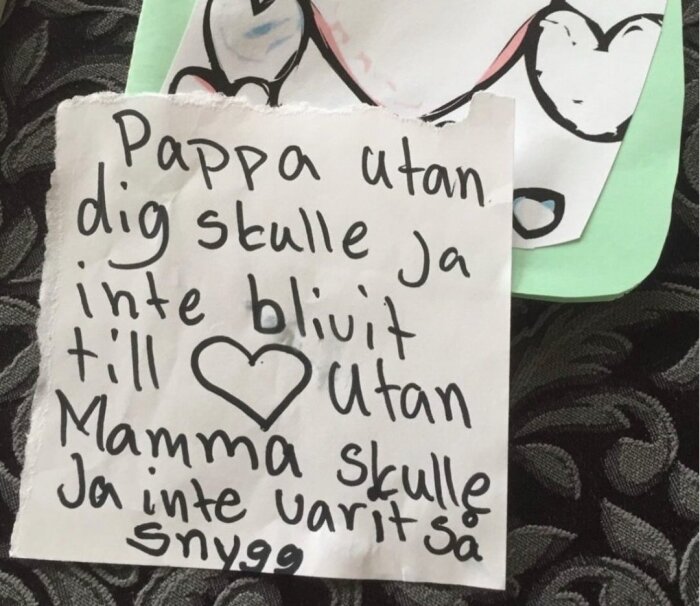 Pappa utan
dig skulle ja
inte blivit
till ♡ utan
Mamma skulle
Ja inte varit så
snygg